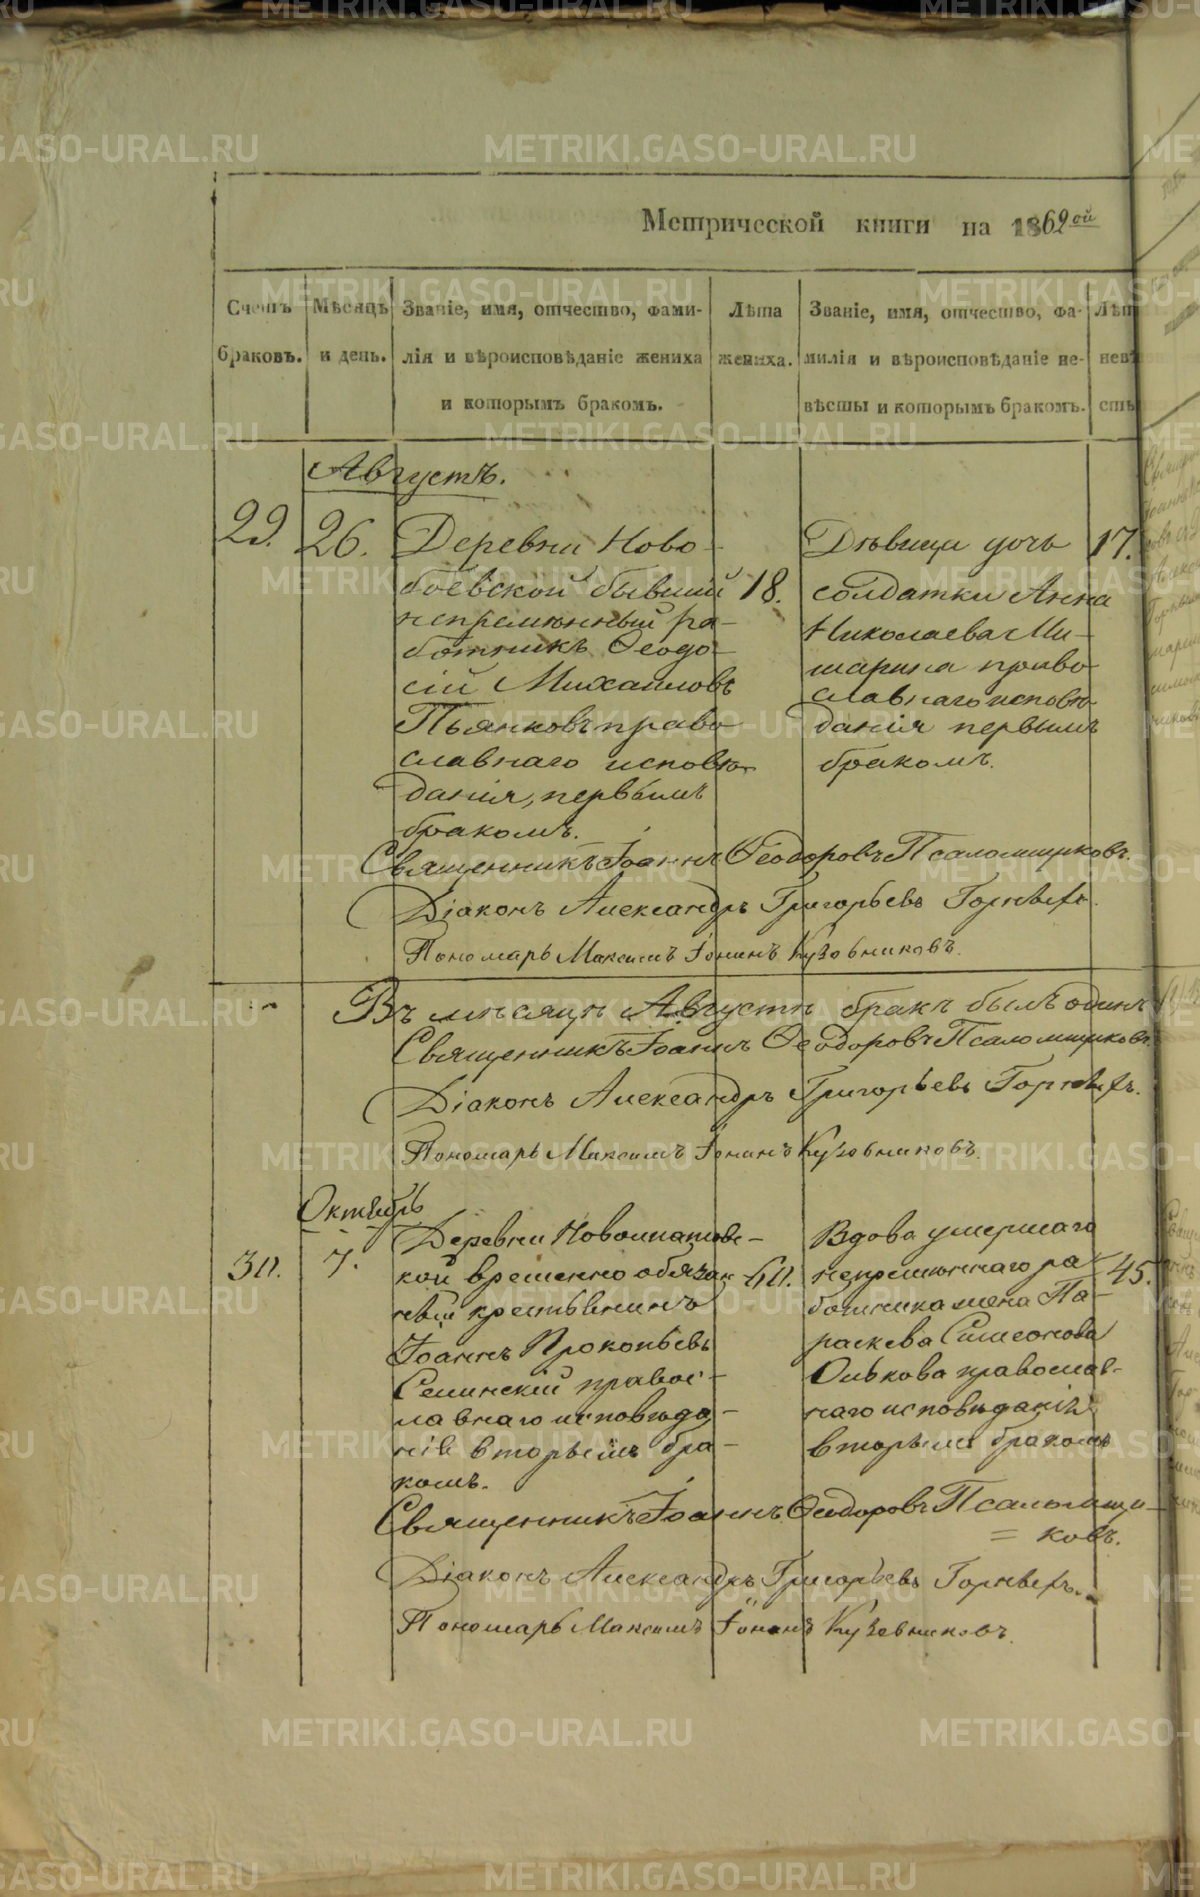 Метрической книги на 1862ой
Счетъ
браковъ.
Мѣсяцъ
и день.
Званіе, имя, отчество, фами-
лія и вѣроисповѣданіе жениха
и которымъ бракомъ.
Лѣта
жениха.
Званіе, имя, отчество, фа-
милія и вѣроисповѣданіе не-
вѣсты и которымъ бракомъ.
Августъ.
29. 26.
Деревни Ново-
боевской бывшій
непремѣнный ра-
ботникъ Ѳеодо-
сій Михаиловъ
Пьянковъ право
славнаго исповѣ-
данія, первымъ
бракомъ.
18.
Дѣвица дочь
солдатки Анна
Николаева Ми-
шарина право
славнаго исповѣ
данія первымъ
бракомъ.
17.
Священникъ Іоаннъ Ѳеодоровъ Псаломщиковъ.
Діаконъ Александръ Григорьевъ
Пономарь Максимъ Іонинъ Кузовниковъ.
Въ мѣсяцѣ Августѣ бракъ былъ одинъ
Священникъ Іоаннъ Ѳеодоровъ Псаломщиковъ.
Діаконъ Александръ Григорьевъ
Пономарь Максимъ Іонинъ Кузовниковъ.
Октябрь
30. 7.
Деревни
кой временно обязан
ный крестьянинъ
Іоаннъ Прокопьевъ
правос-
лавнаго исповѣда-
нія вторымъ бра-
комъ.
60.
Вдова умершаго
непремѣннаго ра-
ботника жена Па-
раскева Симеонова
Олькова православ-
наго исповѣданія
вторымъ бракомъ
45.
Священникъ Іоаннъ Ѳеодоровъ Псаломщи-
= ковъ.
Діаконъ Александръ Григорьевъ
Пономарь Максимъ Іонинъ Кузовниковъ.
METRIKI.GASO-URAL.RU